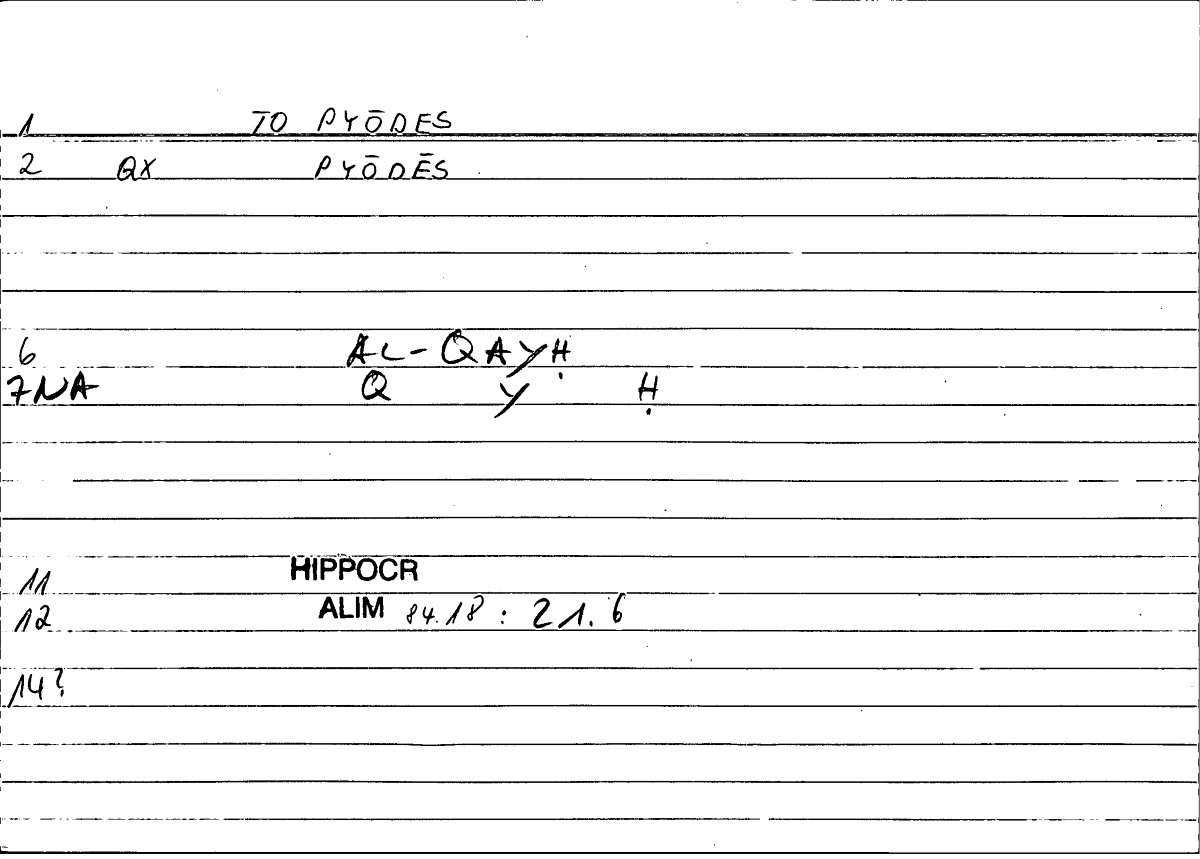 1 TO PYŌDES
2 QX PYŌDĒS
6 AL-QAYḤ
7NA Q Y Ḥ
11 HIPPOCR
12 ALIM 84.18 : 21.6
14?